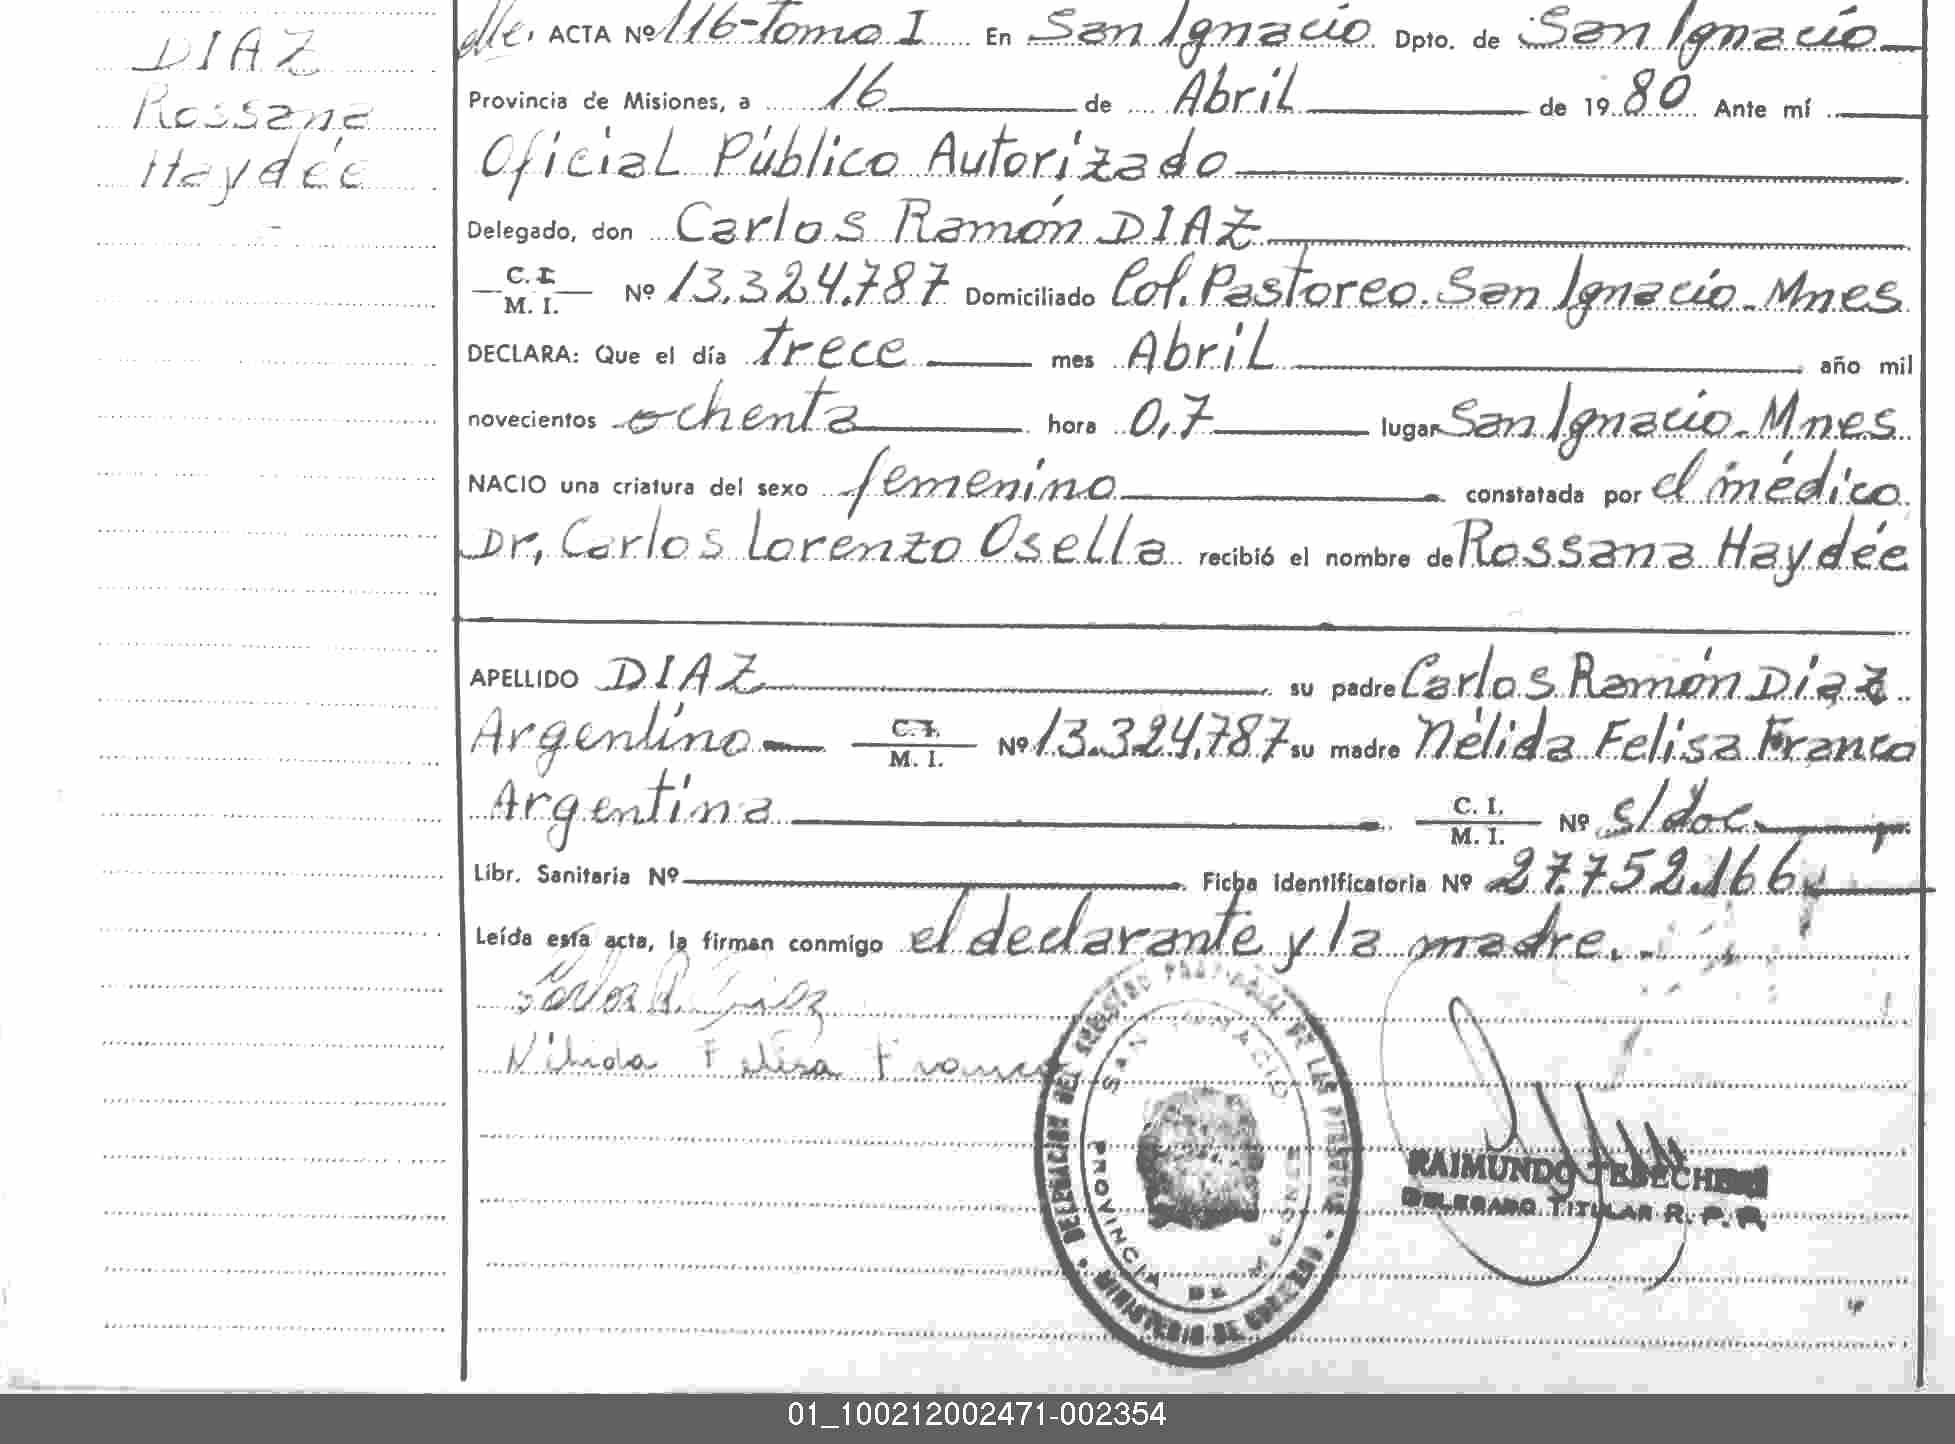 DIAZ
Rossana
Haydée
ACTA Nº 116-Tomo I En San Ignacio Dpto. de San Ignacio
Provincia de Misiones, a 16 de Abril de 1980 Ante mí
Oficial Público Autorizado
Delegado, don Carlos Ramón DIAZ
C. I.
M. I. Nº 13.324.787 Domiciliado Col. Pastoreo. San Ignacio-Mnes
DECLARA: Que el día trece mes Abril año mil
novecientos ochenta hora 0,7 lugar San Ignacio-Mnes
NACIO una criatura del sexo femenino constatada por el médico
Dr, Carlos Lorenzo Osella recibió el nombre de Rossana Haydée
APELLIDO DIAZ su padre Carlos Ramón Díaz
Argentino C. I. M. I. Nº 13.324.787 su madre Nélida Felisa Franco
Argentina C. I. M. I. Nº s/doc.
Libr. Sanitaria Nº Ficha identificatoria Nº 27.752.166
Leída esta acta, la firman conmigo el declarante y la madre.
Carlos R. Diaz
Nélida Felisa Franco
DELEGACION DEL REGISTRO PROVINCIAL DE LAS PERSONAS
SAN IGNACIO
PROVINCIA DE MISIONES
MINISTERIO DE GOBIERNO
RAIMUNDO
DELEGADO TITULAR R. P. P.
01_100212002471-002354